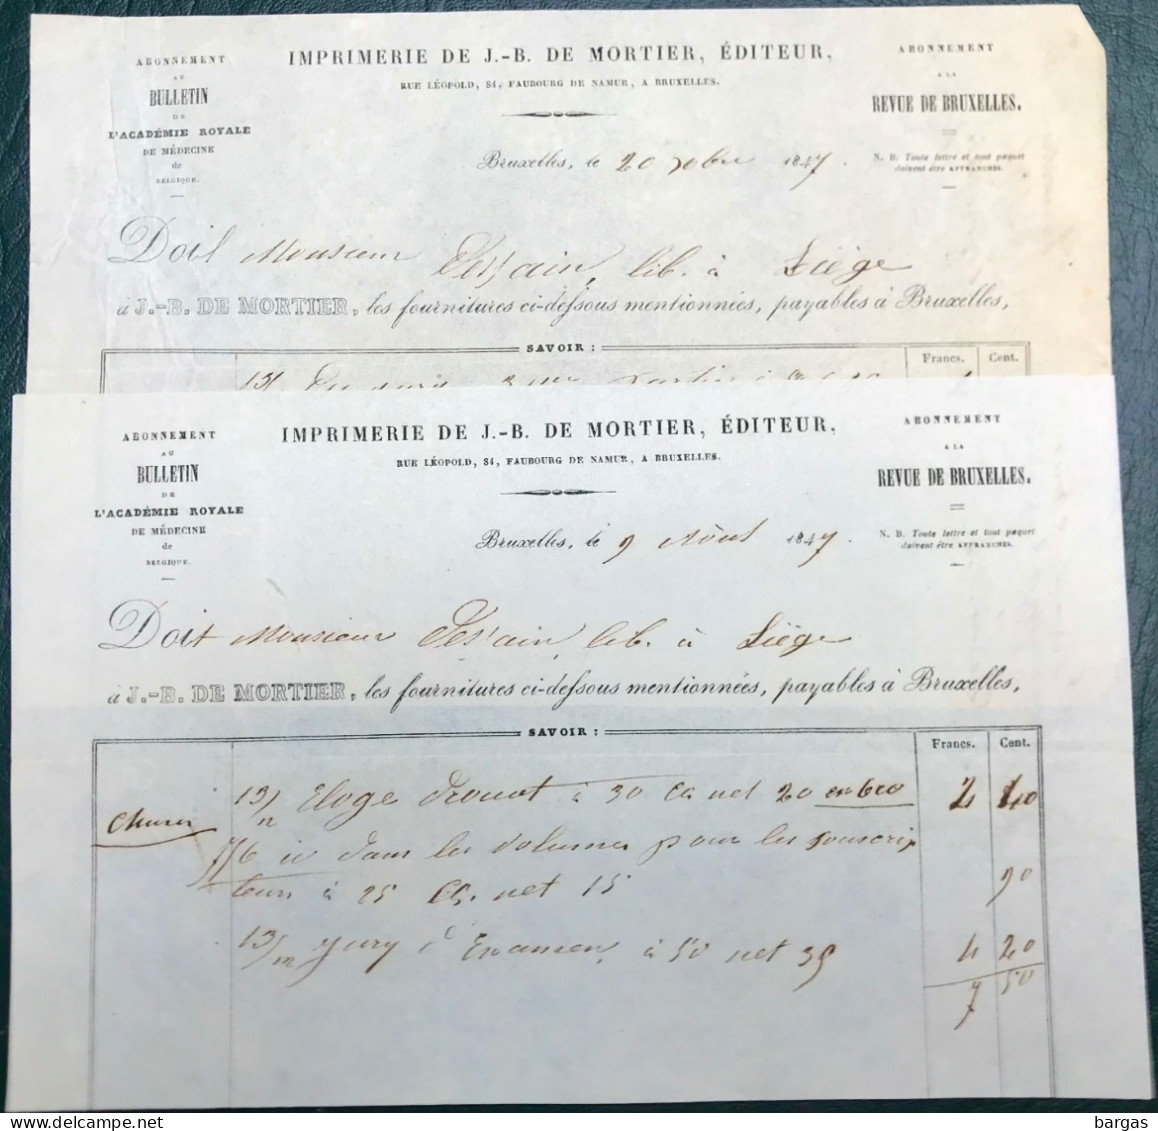 ABONNEMENT
AU
BULLETIN
DE
L'ACADÉMIE ROYALE
DE MÉDECINE
de
BELGIQUE.
IMPRIMERIE DE J.-B. DE MORTIER, ÉDITEUR,
RUE LÉOPOLD, 84, FAUBOURG DE NAMUR, A BRUXELLES.
ABONNEMENT
A LA
REVUE DE BRUXELLES.
N. B. Toute lettre et tout paquet
doivent être AFFRANCHIS.
Bruxelles, le 20 1847.
Doit Monsieur lib. à Liège
à J.-B. DE MORTIER, les fournitures ci-dessous mentionnées, payables à Bruxelles,
SAVOIR :
Francs. Cent.
ABONNEMENT
AU
BULLETIN
DE
L'ACADÉMIE ROYALE
DE MÉDECINE
de
BELGIQUE.
IMPRIMERIE DE J.-B. DE MORTIER, ÉDITEUR,
RUE LÉOPOLD, 84, FAUBOURG DE NAMUR, A BRUXELLES.
ABONNEMENT
A LA
REVUE DE BRUXELLES.
N. B. Toute lettre et tout paquet
doivent être AFFRANCHIS.
Bruxelles, le 9 Août 1847.
Doit Monsieur lib. à Liège
à J.-B. DE MORTIER, les fournitures ci-dessous mentionnées, payables à Bruxelles,
SAVOIR :
Francs. Cent.
13/12 Eloge Drouot à 30 Cs net 20 2 40
7/6 id dans les volumes pour les souscrip
teurs à 25 Cs. net 15 90
13/12 Jury d'Examen, à 50 net 35 4 20
7 50
bargas